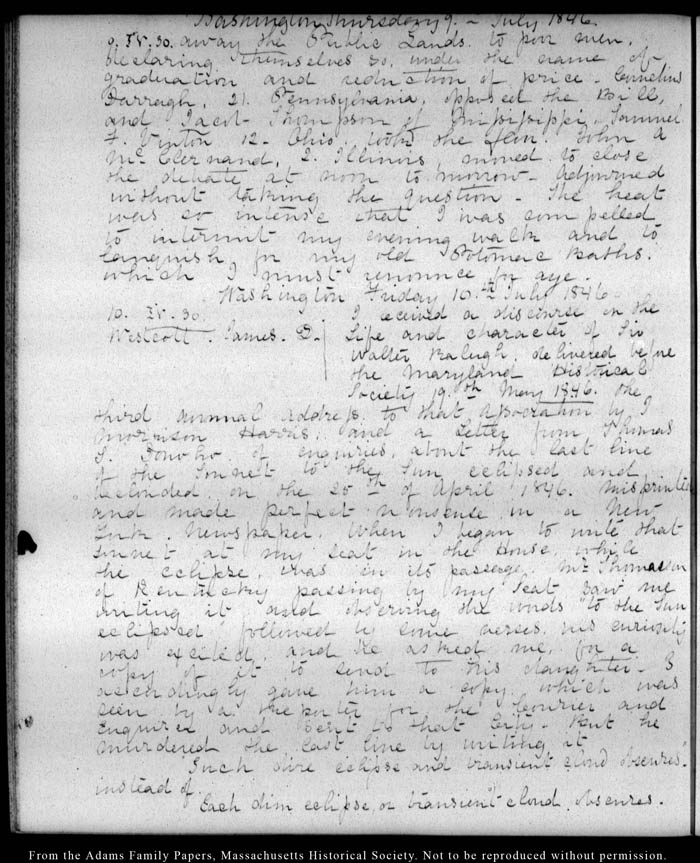 Washington Thursday 9. – July 1846.
9. IV. 30. away the Public Lands to poor men,
declaring themselves so, under the name of
graduation and reduction of price – Cornelius
Darragh, 21. Pennsylvania, opposed the Bill,
and Jacob Thompson of Mississippi – Samuel
F. Vinton 12 – Ohio, took the floor. John A
McClernand, 2. Illinois, moved to close
the debate at noon to-morrow – Adjourned
without taking the question – The heat
was so intense that I was compelled
to intermit my evening walk and to
languish for my old Potomac Baths.
which I must renounce for age.
Washington Friday 10.th July 1846
10. IV. 30.
Westcott. James. D.
I received a discourse on the
Life and character of Sir
Walter Raleigh, delivered before
the Maryland Historical
Society 19.th May 1846. the
third annual address to that Association by J
Morrison Harris, and a Letter from Thomas
J. of enquiries, about the last line
of the Sonnet to the Sun eclipsed and
beclouded on the 25th of April 1846. misprinted
and made perfect nonsense in a New-
York. Newspaper. When I began to write that
sonnet at my seat in the House, while
the eclipse was in its passage, Mr Thomasson
of Kentucky passing by my Seat saw me
writing it and observing the words "to the Sun
eclipsed" followed by some verses, his curiosity
was excited, and he asked me, for a
copy of it to send to his daughter – I
accordingly gave him a copy, which was
seen by a reporter for the Courier and
Enquirer and sent to that City – But he
murdered the last line by writing it
Such dire eclipse and transient cloud obscures.
instead of
Each dim eclipse, or transient cloud, obscures.
From the Adams Family Papers, Massachusetts Historical Society. Not to be reproduced without permission.